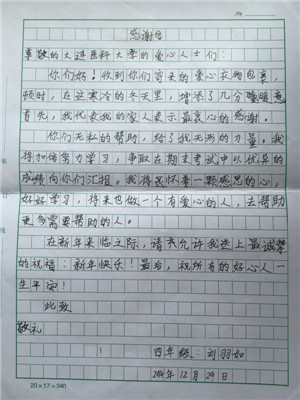 感谢信
尊敬的大连医科大学的爱心人士们:
你们好!收到你们寄来的爱心衣物包裹,
顿时,在这寒冷的冬天里,增添了几分暖暖意
首先,我代表我的家人表示最衷心的感谢。
你们无私的帮助,给了我无形的力量。我
将加倍努力学习,争取在期末考试中以优异的
成绩向你们汇报。我将民怀着一颗感恩的心,
好好学习,将来也做一个有爱心的人,去帮助
更多需要帮助的人。
在新年来临之际,请允许我送上最诚挚
的祝福:新年快乐!最后,祝所有的好心人一
生平安!
此致
敬礼
四年级:刘羽如
12月29日
20×17=340